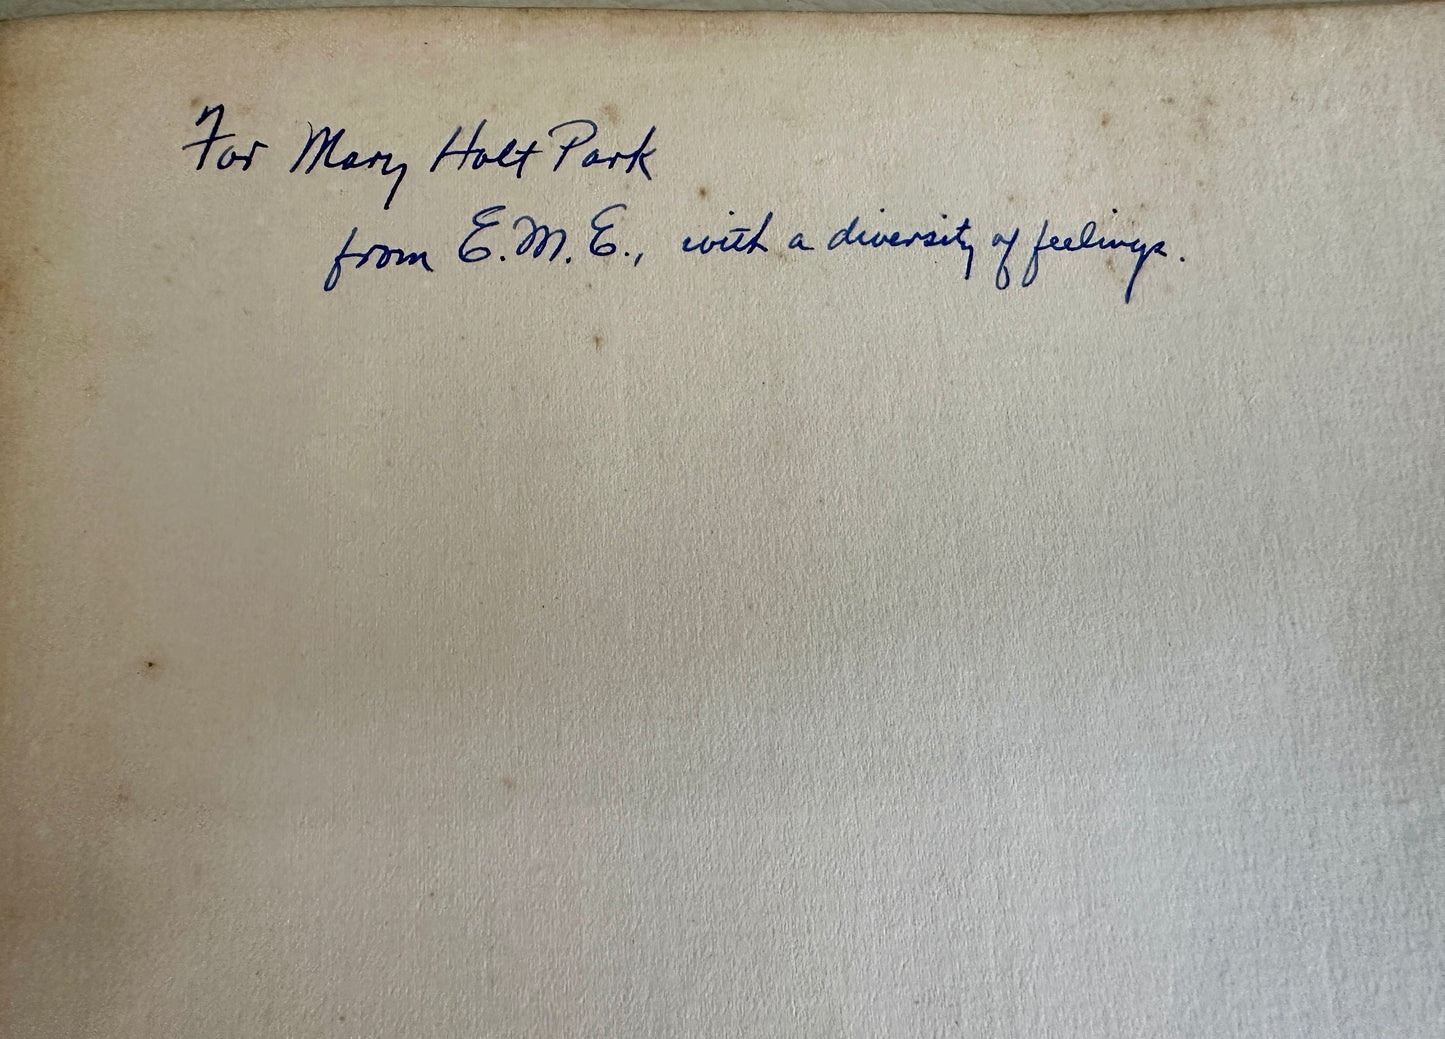 For Mary Holt Park
from E.M.E., with a diversity of feelings.